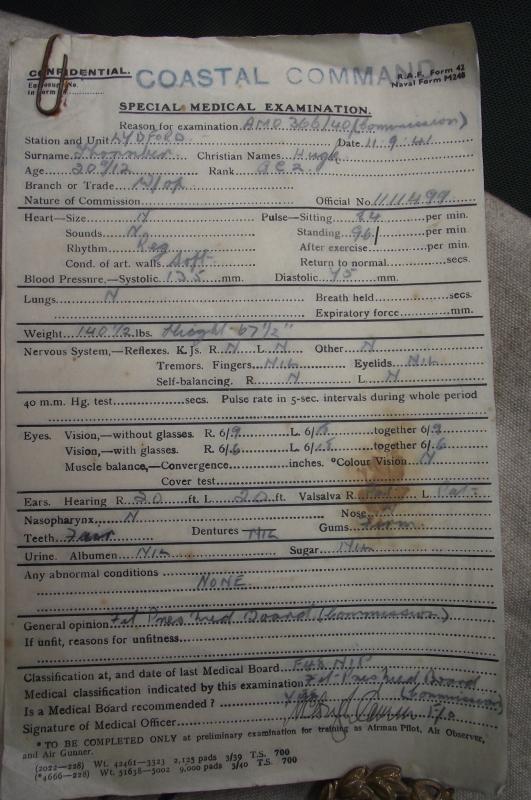 CONFIDENTIAL.
COASTAL COMMAND
R.A.F. Form 42
Naval Form M248
SPECIAL MEDICAL EXAMINATION.
Reason for examination AMO 366/40 (Commission)
Station and Unit LYDFORD Date 11.9.41
Surname Christian Names Hugh
Age 20 9/12 Rank AC2
Branch or Trade W/op
Nature of Commission Official No. 1111499
Heart—Size N Pulse—Sitting 84 per min.
Sounds N Standing 96 per min.
Rhythm Reg After exercise per min.
Cond. of art. walls Soft Return to normal secs.
Blood Pressure,—Systolic 125 mm. Diastolic 75 mm.
Lungs N Breath held secs.
Expiratory force mm.
Weight 140 1/2 lbs. Height 67 1/2"
Nervous System,—Reflexes. K. Js. R N L N Other N
Tremors. Fingers NIL Eyelids NIL
Self-balancing. R N L N
40 m.m. Hg. test secs. Pulse rate in 5-sec. intervals during whole period
Eyes. Vision,—without glasses. R. 6/9 L. 6/ together 6/9
Vision,—with glasses. R. 6/6 L. 6/ together 6/6
Muscle balance,—Convergence inches. *Colour Vision N
Cover test
Ears. Hearing R 20 ft. L 20 ft. Valsalva R Pat L Pat
Nasopharynx N Nose N
Teeth Fair Dentures NIL Gums Firm
Urine. Albumen NIL Sugar NIL
Any abnormal conditions
NONE
General opinion Fit Board (Commission)
If unfit, reasons for unfitness
Classification at, and date of last Medical Board
Medical classification indicated by this examination Fit Board
Is a Medical Board recommended ? (Commission)
Signature of Medical Officer F/O
* TO BE COMPLETED ONLY at preliminary examination for training as Airman Pilot, Air Observer,
and Air Gunner.
(2022—228) Wt. 42461—3323 2,125 pads 3/39 T.S. 700
(*4666—228) Wt. 51638—5002 9,000 pads 3/40 T.S. 700